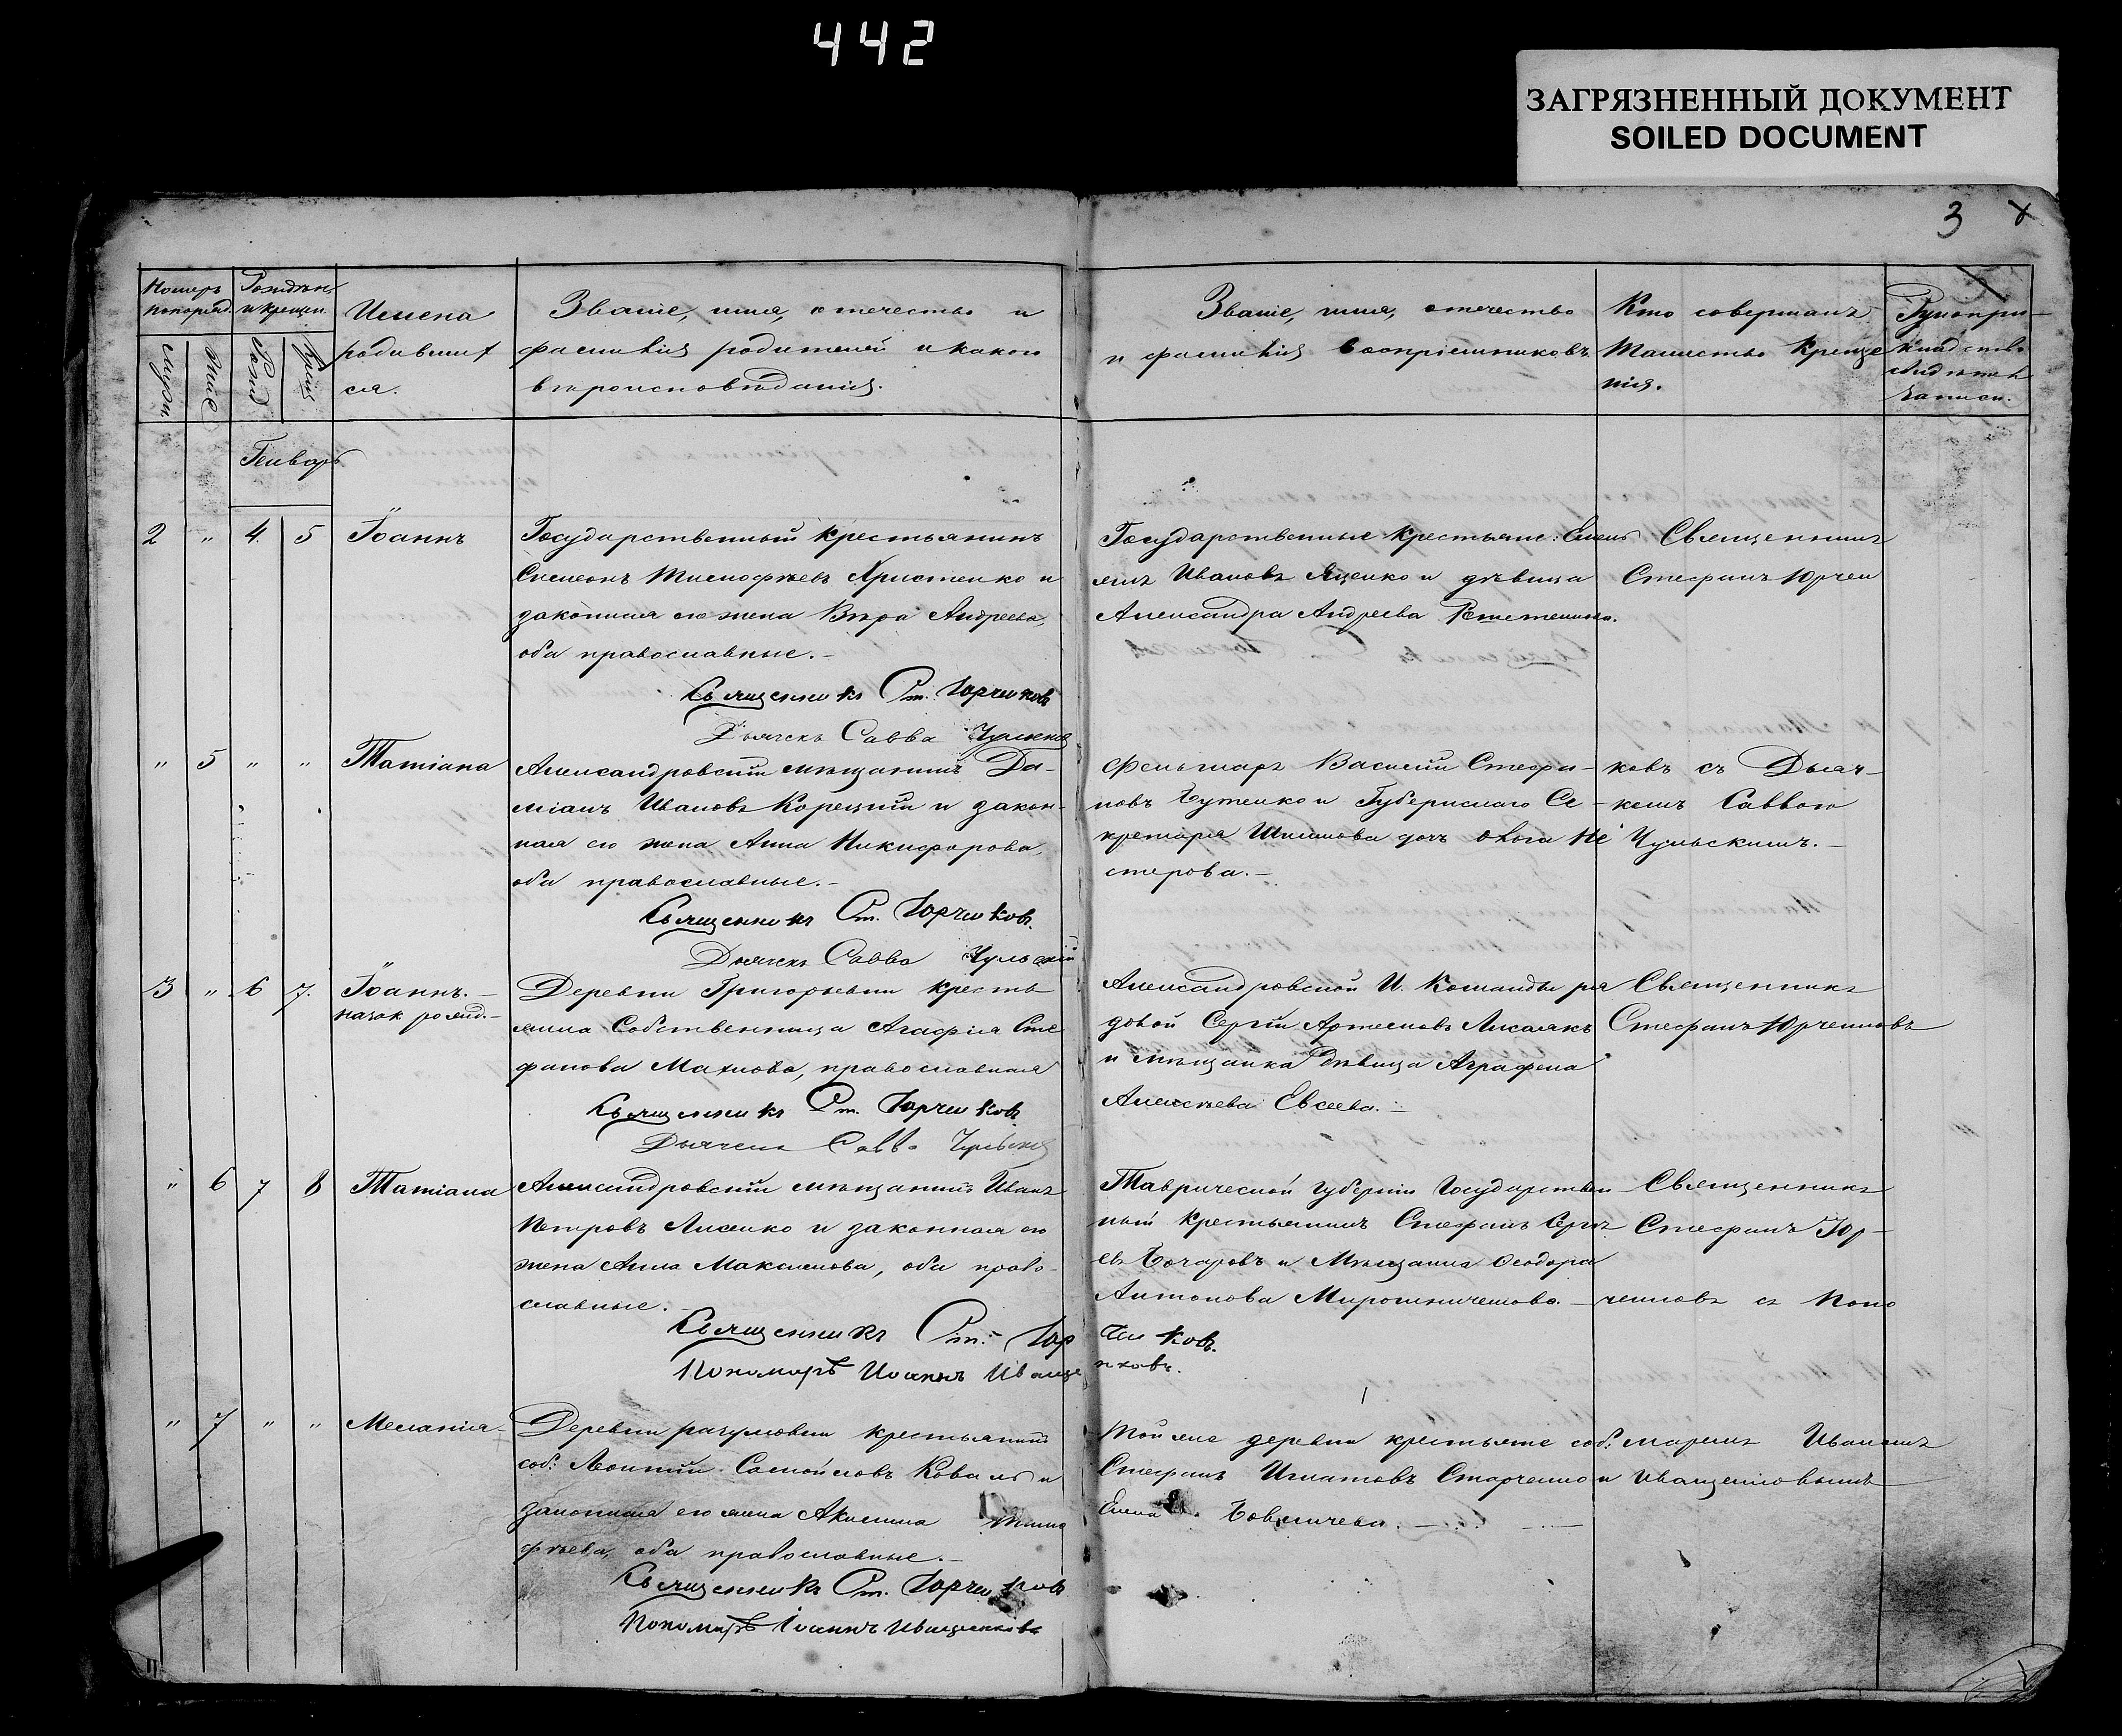 442
ЗАГРЯЗНЕННЫЙ ДОКУМЕНТ
SOILED DOCUMENT
3
Номеръ
Имена
родивших
ся.
Званіе, имя, отечество и
фамилія родителей и какого
вѣроисповѣданія.
Званіе, имя, отечество
и фамилія воспріемниковъ.
Кто совершалъ
Таинство Креще
нія.
Генварь
2 " 4. 5 Іоаннъ
Государственный крестьянинъ
Христенко и
законная его жена Вѣра Андреева,
оба православные. –
Священникъ Ст. Юрченковъ
Дьячекъ Савва
Государственные крестьяне:
Ивановъ Яценко и дѣвица
Александра Андреева
Священникъ
Стефанъ Юрчен
" 5 " " Татіана
Александровскій мѣщанинъ Да-
міанъ Ивановъ Корецкій и закон-
ная его жена Анна Никифорова,
оба православные. –
Священникъ Ст. Юрченковъ.
Дьячекъ Савва Чульскій
Фельдшаръ Василій Стефа-
новъ Бутенко и Губернскаго Се-
кретаря дочь Ольга Не
стерова. –
ковъ съ Дьяч-
комъ Саввою
Чульскимъ. –
3 " 6 7. Іоаннъ. –
Деревни Григорьевки кресть
янка Собственница Агафія Сте
фанова Махнова, православная
Священникъ Ст. Юрченковъ
Дьячекъ Савва Чульскій
Александровской И. Команды ря
довой Сергій Артемовъ
и мѣщанка дѣвица Аграфена
Алексѣева Евсеева. –
Священникъ
Стефанъ Юрченковъ
" 6 7 8 Татіана
Александровскій мѣщанинъ Иванъ
Петровъ Лисенко и законная его
жена Анна Максимова, оба право-
славные. –
Священникъ Ст. Юр
ченковъ.
Пономарь Иоаннъ Иваще
нковъ.
Таврической губерніи Государствен-
ный крестьянинъ Стефанъ Серге
евъ Бочаровъ и Мѣщанка Ѳеодора
Антонова Мирошниченкова. –
Священникъ
Стефанъ Юр-
ченковъ съ Поно
" 7 " " Меланія
Деревни Разумовки крестьянинъ
соб: Леонтій Самойловъ Коваль и
законная его жена Акилина Тимо
фѣева, оба православные. –
Священникъ Ст. Юрченковъ
Пономарь Іоаннъ Иващенковъ
Той же деревни крестьяне соб:
Стефанъ Игнатовъ Старченко и
Елена
маремъ Иваномъ
Иващенковымъ